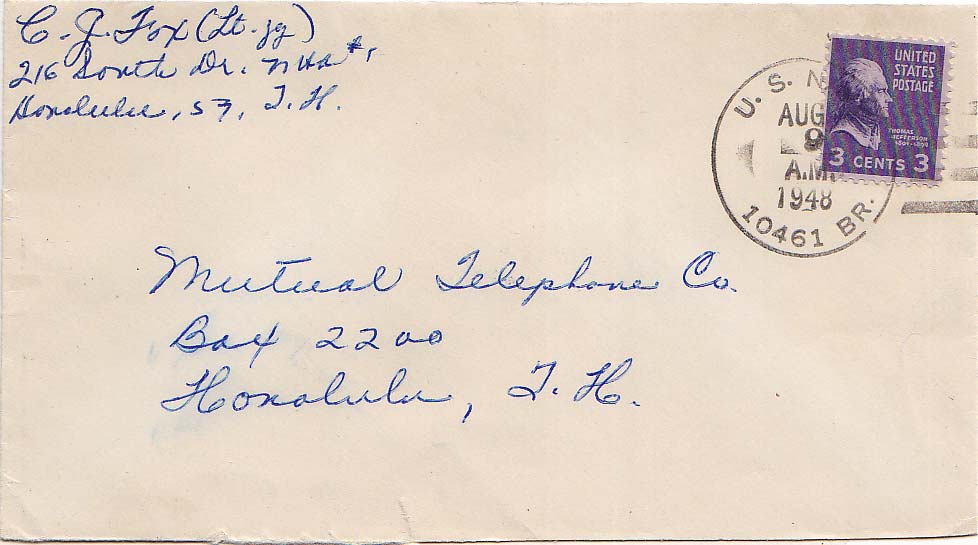 C. J. Fox (Lt. jg)
216 South Dr. NHA #1
Honolulu, 57, T.H.
UNITED
STATES
POSTAGE
THOMAS
JEFFERSON
1801-1809
3 CENTS 3
U. S. N
AUG
9
A.M.
1948
10461 BR.
Mutual Telephone Co.
Box 2200
Honolulu, T. H.